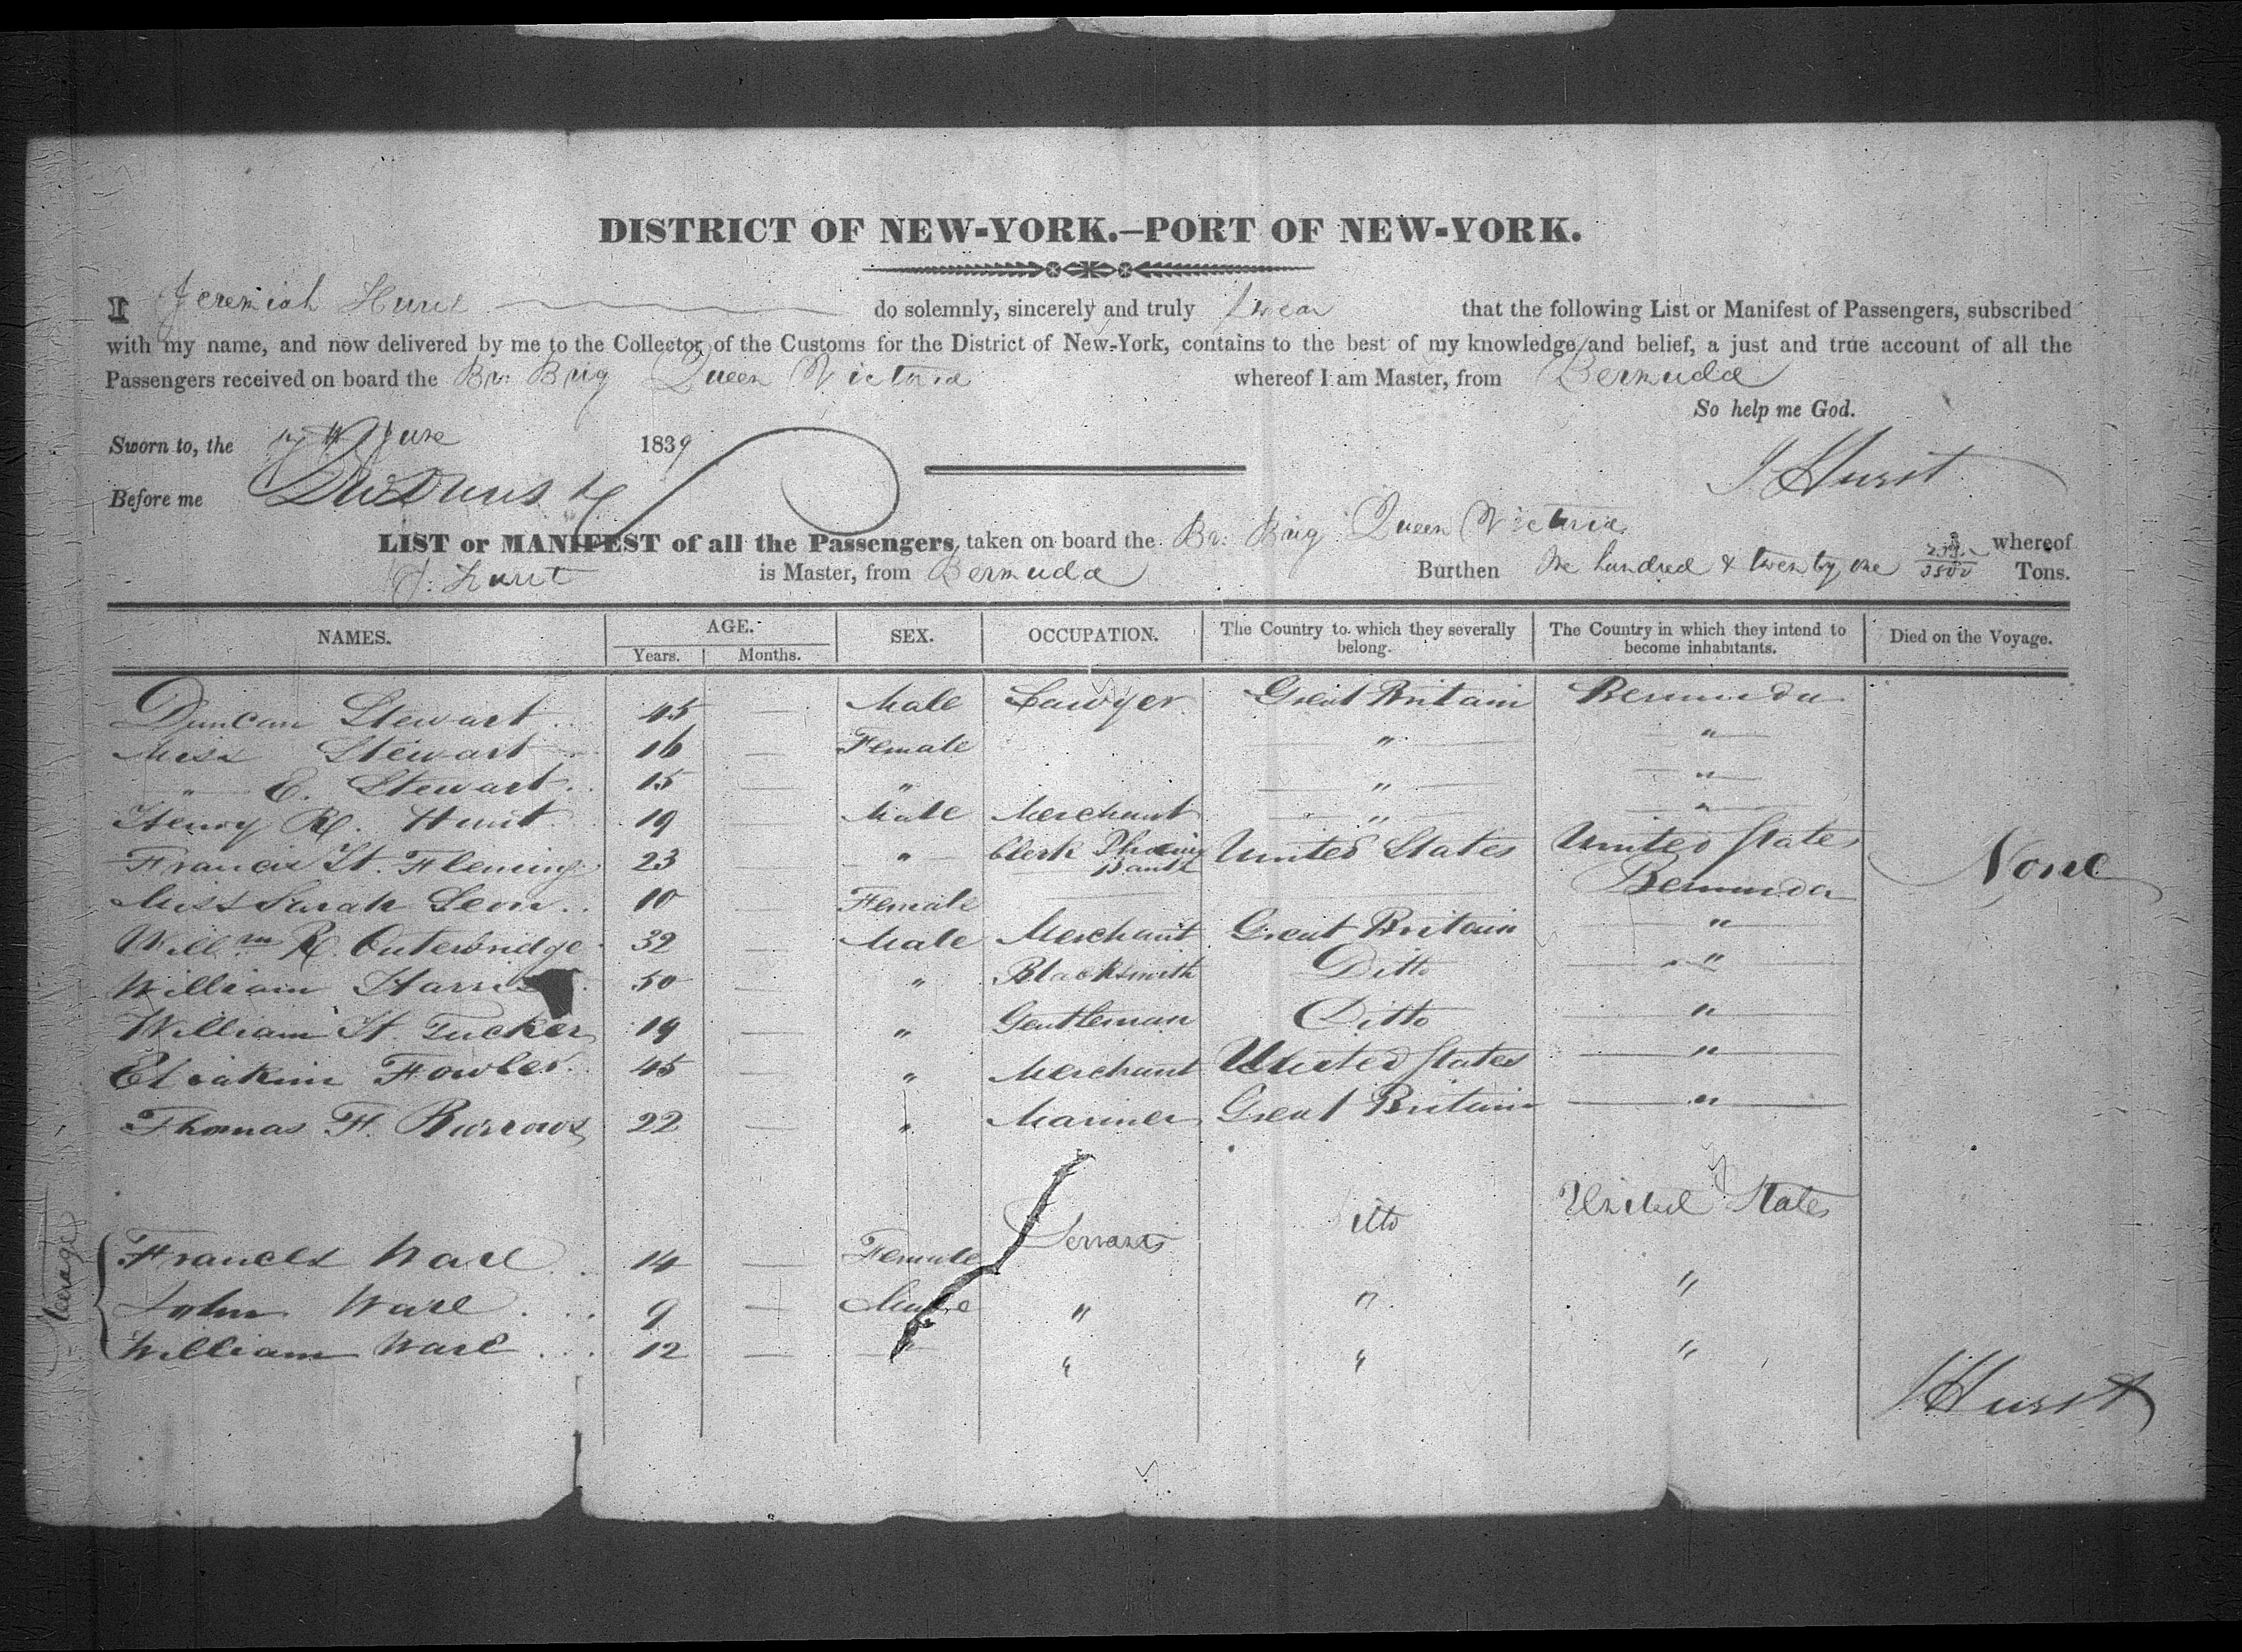 DISTRICT OF NEW-YORK.–PORT OF NEW-YORK.
I Jeremiah Hurst do solemnly, sincerely and truly swear that the following List or Manifest of Passengers, subscribed
with my name, and now delivered by me to the Collector of the Customs for the District of New-York, contains to the best of my knowledge and belief, a just and true account of all the
Passengers received on board the Br. Brig Queen Victoria whereof I am Master, from Bermuda
So help me God.
Sworn to, the June 1839
J Hurst
Before me
LIST or MANIFEST of all the Passengers taken on board the Br. Brig Queen Victoria whereof
J. Hurst is Master, from Bermuda Burthen One hundred & twenty one Tons.
NAMES. AGE. SEX. OCCUPATION. The Country to which they severally belong. The Country in which they intend to become inhabitants. Died on the Voyage.
Years. Months.
Duncan Stewart 45 — Male Lawyer Great Britain Bermuda
Miss Stewart 16 — Female " "
" E. Stewart 15 — " " "
Henry R. Hunt 19 — Male Merchant " "
Francis H. Fleming 23 — " Clerk Phoenix Bank United States United States
None
Miss Sarah 10 — Female Bermuda
Will.m R. Outerbridge 32 — Male Merchant Great Britain "
William Harris 50 — " Blacksmith Ditto "
William H. Tucker 19 — " Gentleman Ditto "
Eliakim Fowler 45 — " Merchant United States "
Thomas F. Burrows 22 — " Mariner Great Britain "
Steerage
Frances Ware 14 — Female Servants itto United States
John Ware 9 — Male " " "
William Ware 12 — " " " "
J Hurst